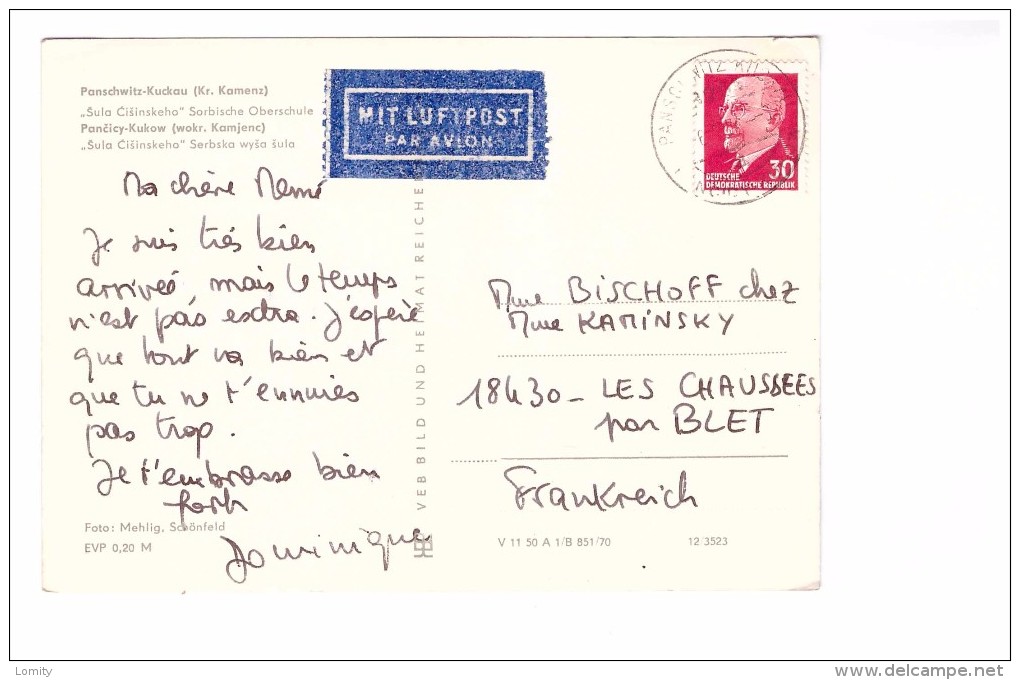 Panschwitz-Kuckau (Kr. Kamenz)
„Šula Ćišinskeho" Sorbische Oberschule
Pančicy-Kukow (wokr. Kamjenc)
„Šula Ćišinskeho" Serbska wyša šula
MIT LUFTPOST
PAR AVION
30
DEUTSCHE
DEMOKRATISCHE REPUBLIK
Ma chère Mémé
Je suis très bien
arrivée, mais le temps
n'est pas extra. J'espère
que tout va bien et
que tu ne t'ennuies
pas trop.
Je t'embrasse bien
fort
Dominique
Foto: Mehlig, Schönfeld
EVP 0,20 M
VEB BILD UND HEIMAT REICHE
Mme BISCHOFF chez
Mme KAMINSKY
18430 - LES CHAUSSEES
par BLET
Frankreich
V 11 50 A 1/B 851/70
12/3523
Lomity
delcampe.net